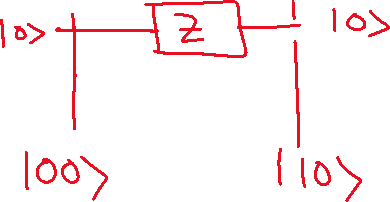 |0> Z |0>
|00> |10>